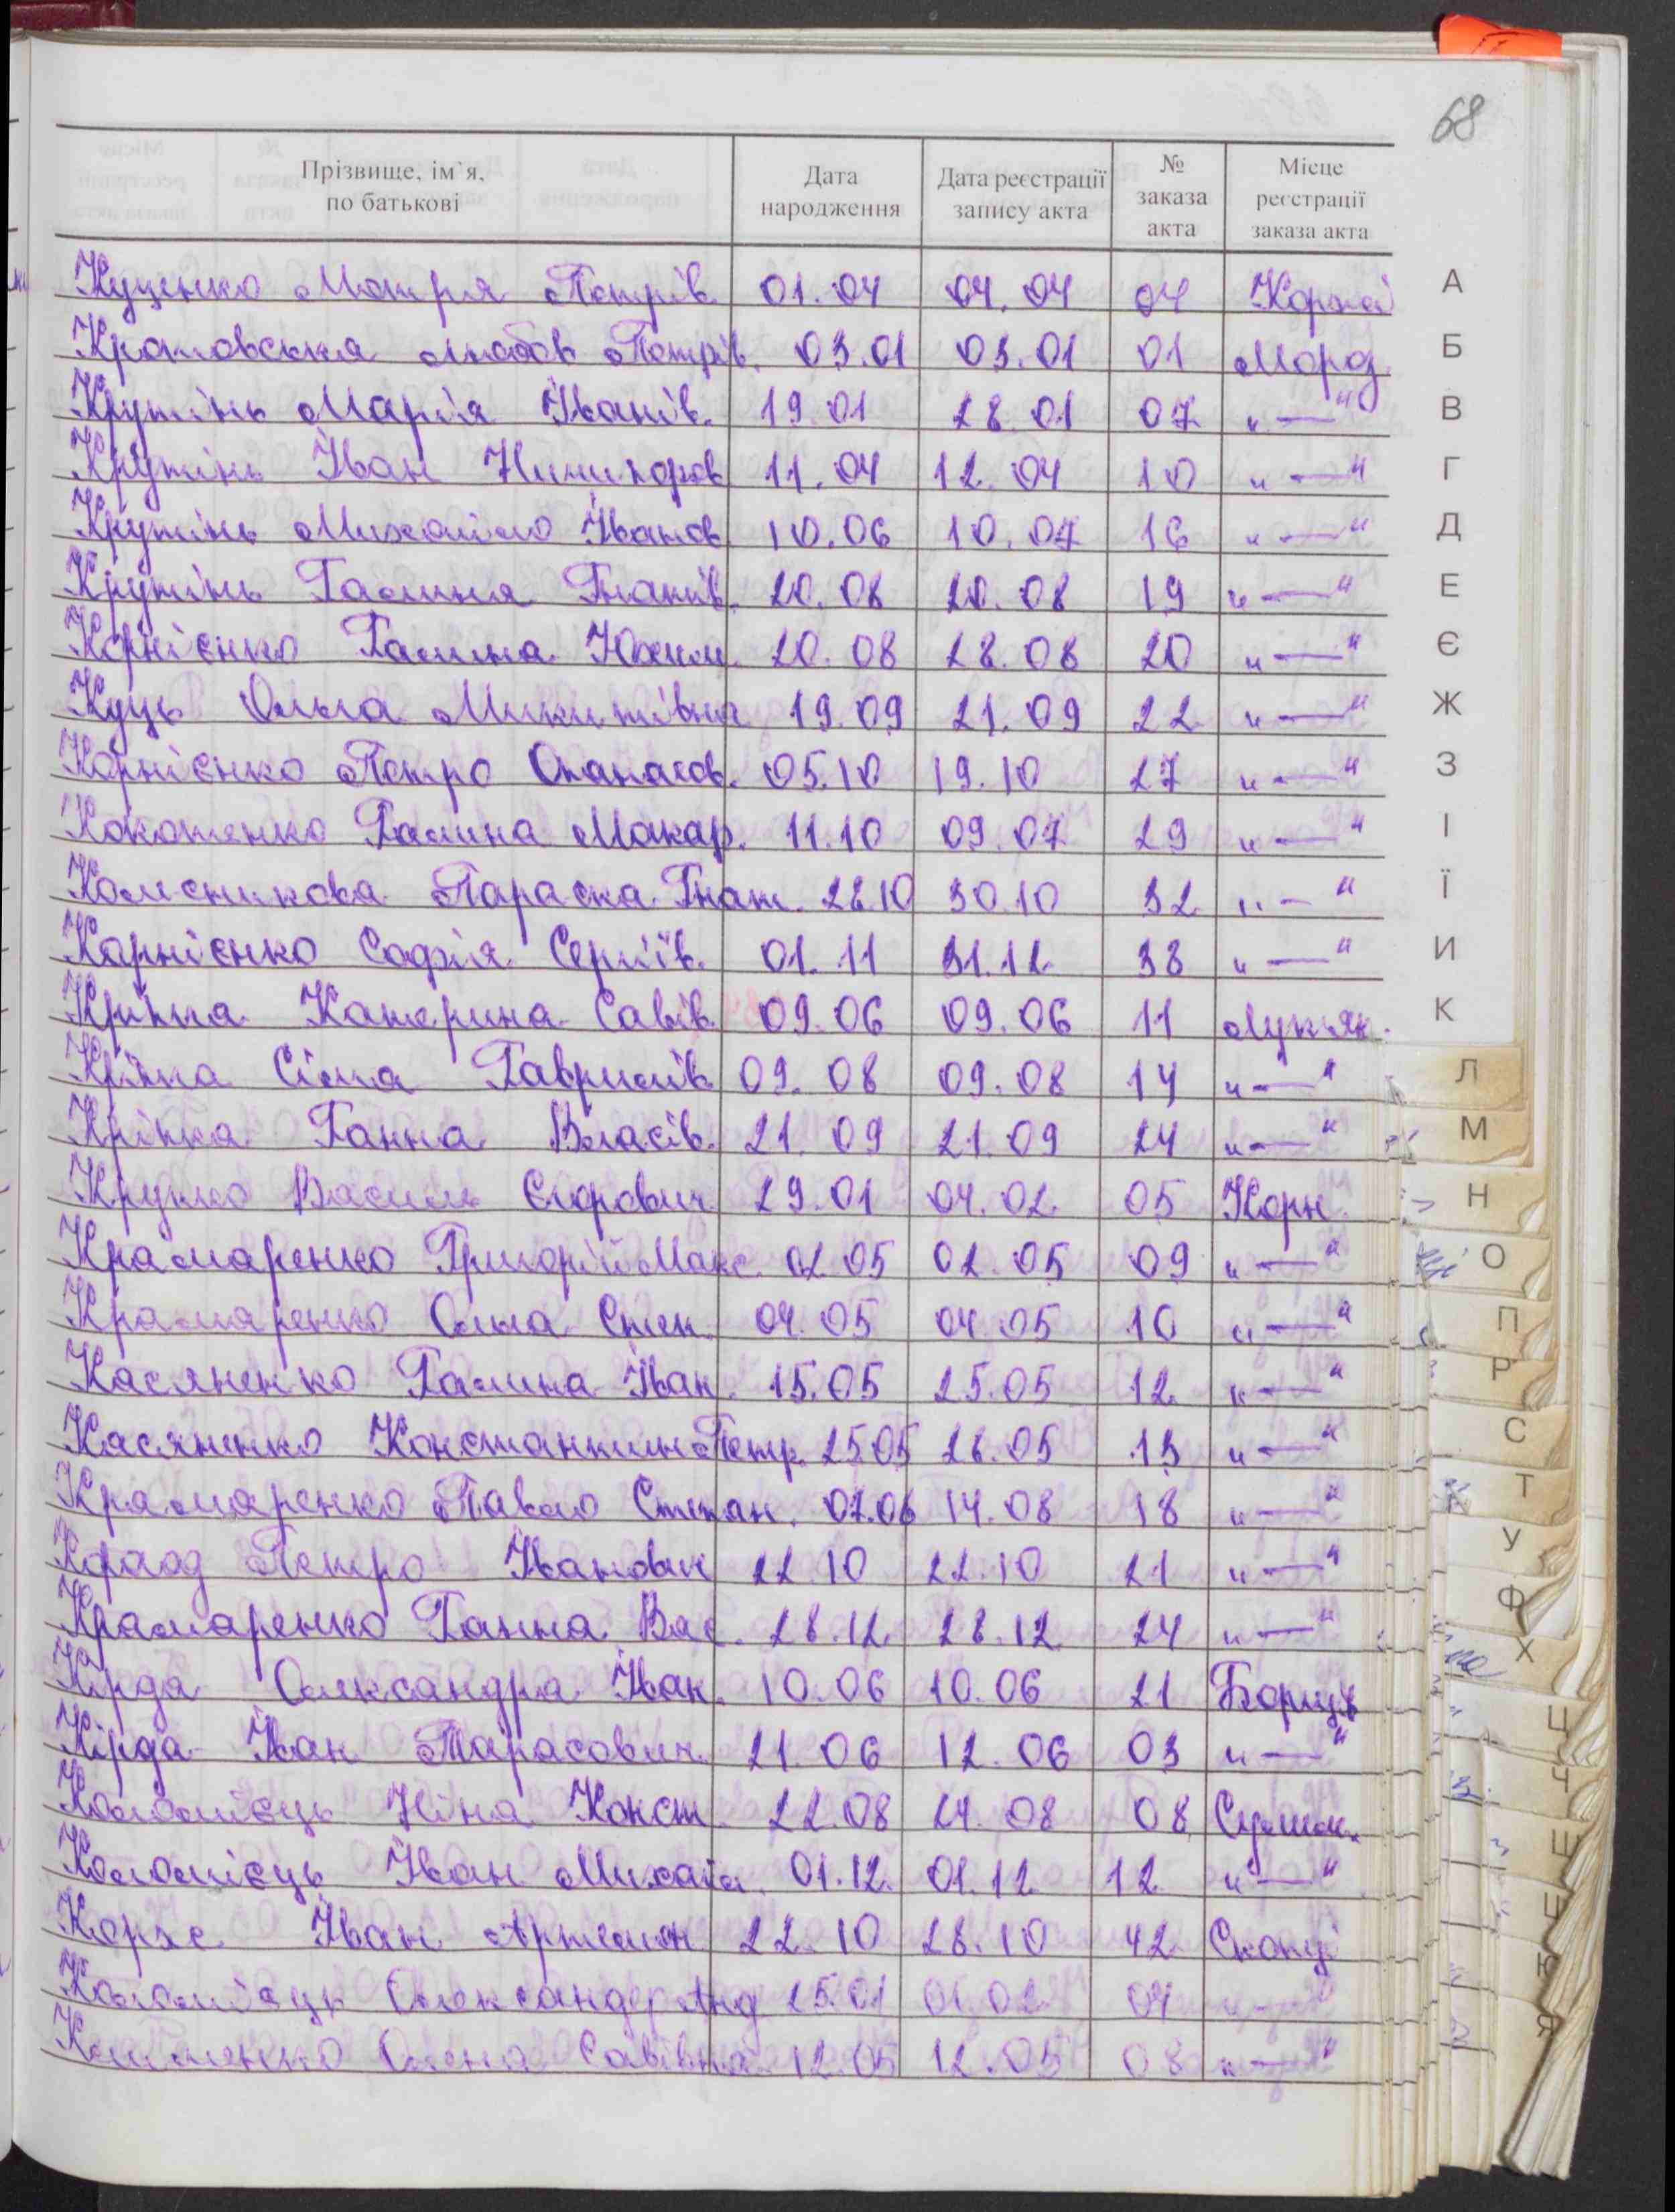 68
Прізвище, ім`я, по батькові Дата народження Дата реєстрації запису акта № заказа акта Місце реєстрації заказа акта
Куценко Мотря Петрів. 01.04 04.04 04 Коржі
Кротовська Любов Петрів. 03.01 03.01 01 Мороз.
Крутінь Марія Іванів. 19.01 28.01 07 "—"
Крутінь Іван Ничипоров 11.04 12.04 10 "—"
Крутінь Михайло Іванов 10.06 10.07 16 "—"
Крутінь Галина Гнатів. 20.08 20.08 19 "—"
Корнієнко Галина Юхим. 20.08 28.08 20 "—"
Куць Ольга Микитівна 19.09 21.09 22 "—"
Корнієнко Петро Опанасов. 05.10 19.10 27 "—"
Галина Макар. 11.10 09.07 29 "—"
Колесникова Параска Гнат. 28.10 30.10 32 "—"
Корнієнко Софія Сергіїв. 01.11 31.12 38 "—"
Кріпка Катерина Савів. 09.06 09.06 11 Лук'ян.
Кріпка Гаврилів 09.08 09.08 14 "—"
Кріпка Ганна Власів. 21.09 21.09 24 "—"
Василь Єгорович 29.01 04.02 05 Корн
Крамаренко Григорій Макс. 02.05 02.05 09 "—"
Крамаренко Ольга Степ. 04.05 04.05 10 "—"
Касяненко Галина Іван. 15.05 25.05 12 "—"
Касяненко Константин Петр. 25.05 26.05 13 "—"
Крамаренко Павло Степан. 07.06 14.08 18 "—"
Петро Іванович 22.10 22.10 21 "—"
Крамаренко Ганна Вас. 28.12 28.12 24 "—"
Кірда Олександра Іван. 10.06 10.06 21 Борщів
Кірда Іван Тарасович 21.06 12.06 03 "—"
Коломієць Ніна Конст. 22.08 24.08 08
Коломієць Іван Михайл. 01.12. 01.12 12 "—"
Корж Іван Артемон 22.10 28.10 42 Скопці
Коломієць Олександр Анд 25.01 01.02 04 "—"
Клименко Олена Савівна 12.05 12.05 08 "—"
А
Б
В
Г
Д
Е
Є
Ж
З
І
Ї
И
К
Л
М
Н
О
П
Р
С
Т
У
Ф
Х
Ц
Ч
Ш
Щ
Ю
Я